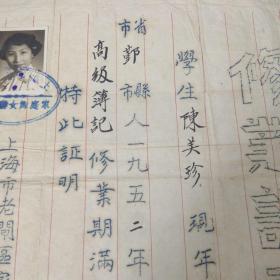 修業
學生陳美珍 現年
省市鄞縣市人一九五二年
高級簿記修業期滿
特此証明
上海市老閘區
家庭婦女